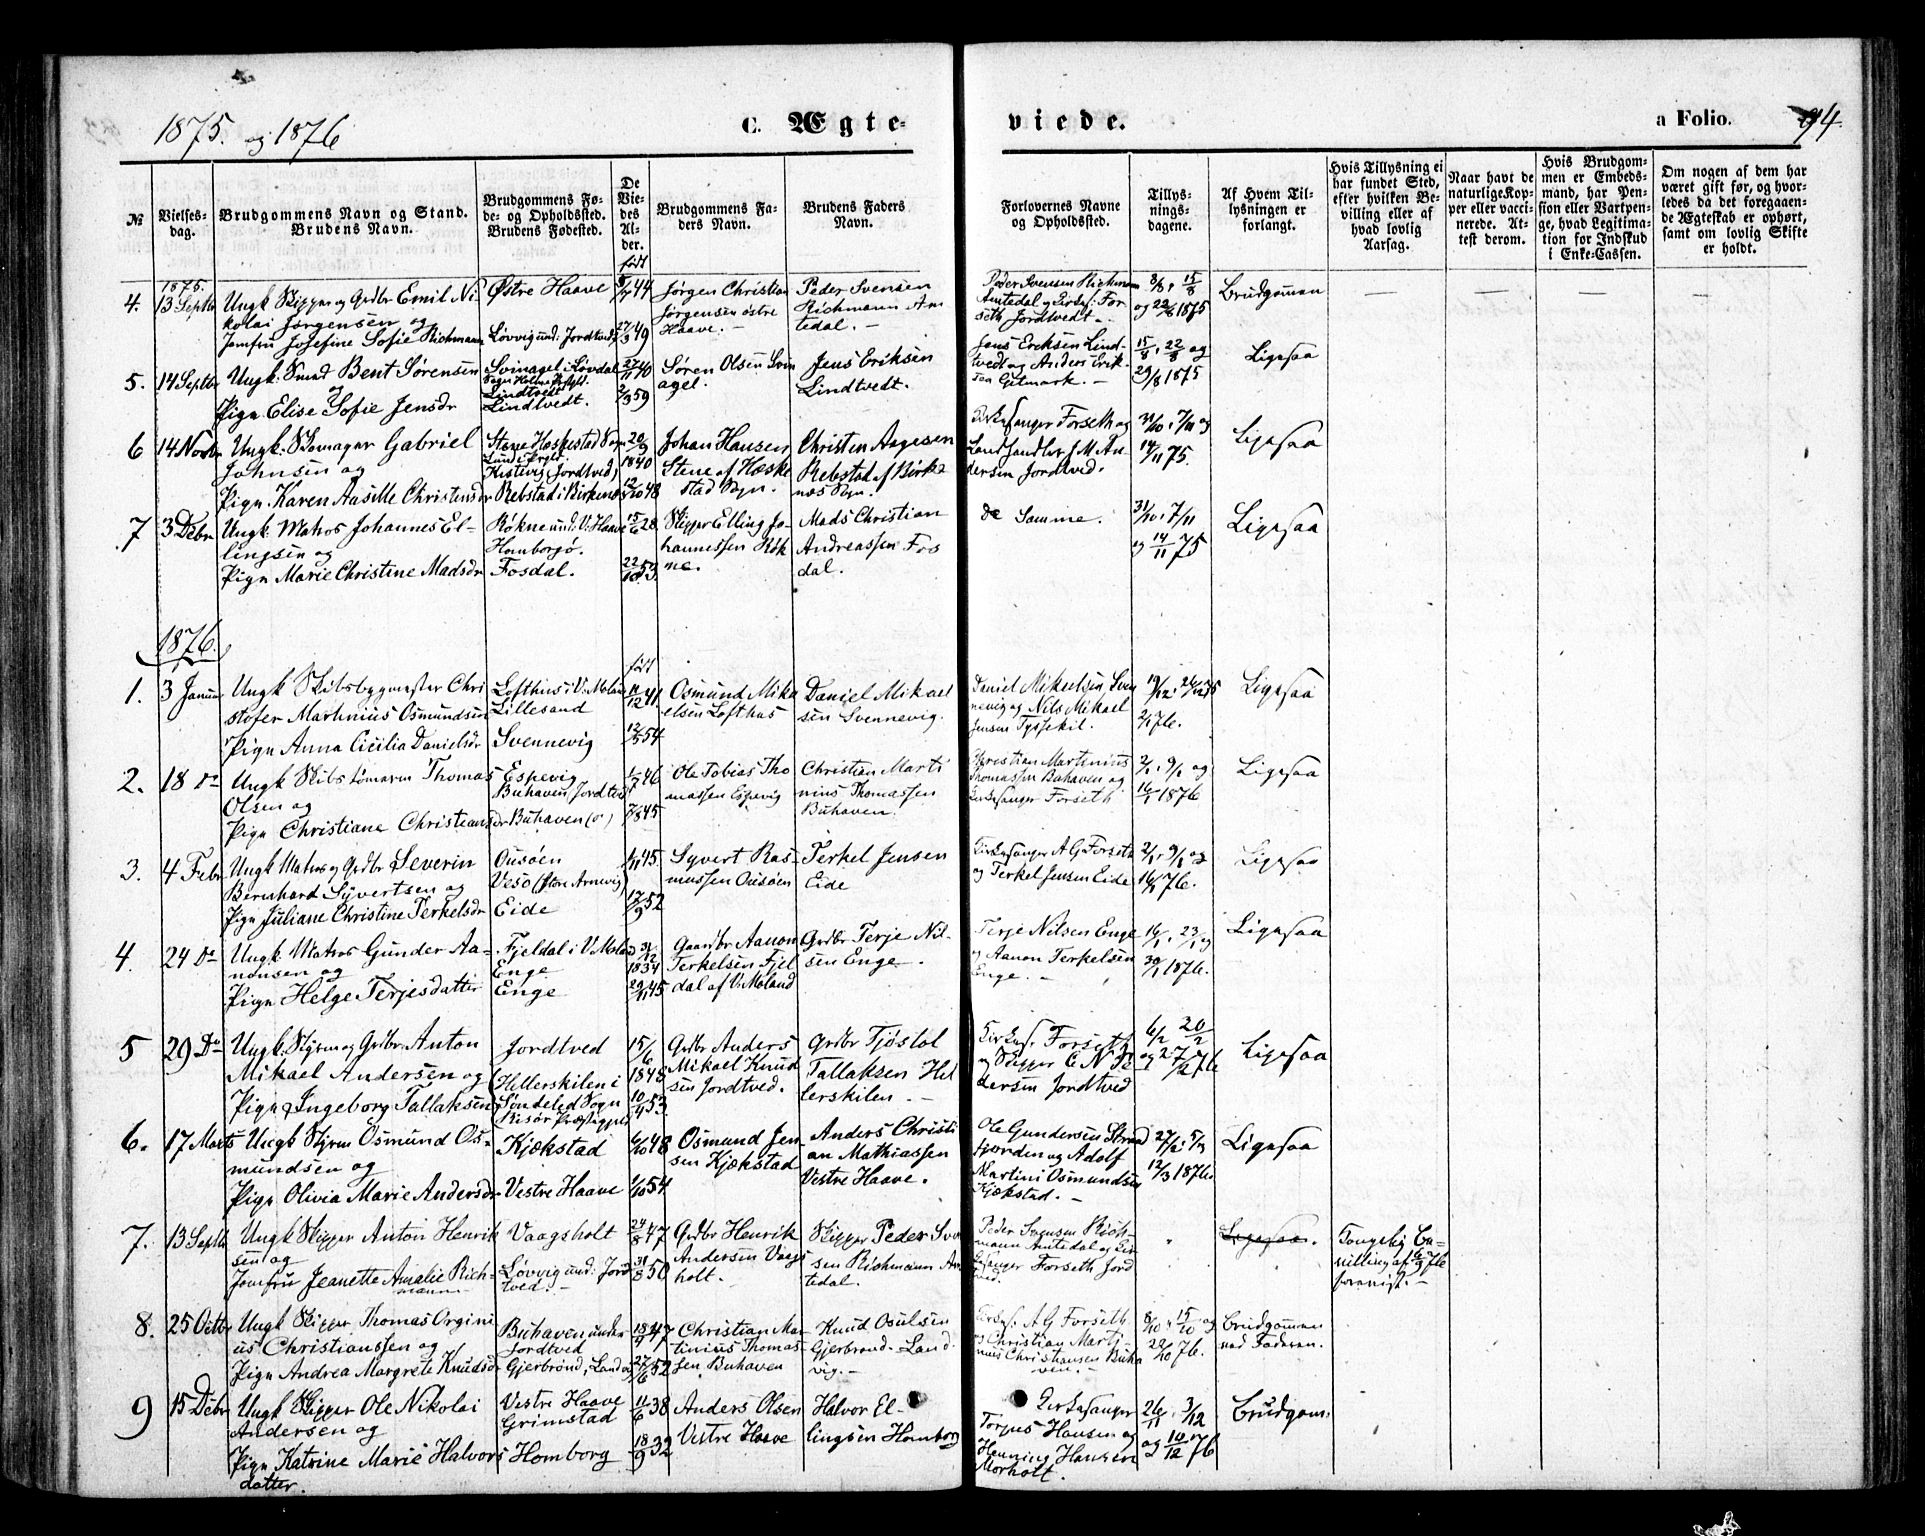 1875. og 1876
C. Ægte-
viede.
a Folio. 94.
№
Vielses-
dag.
Brudgommens Navn og Stand.
Brudens Navn.
Brudgommens Fø-
de- og Opholdssted.
Brudens Fødested.
De
Vie-
des
Al-
der.
Brudgommens Fa-
ders Navn.
Brudens Faders
Navn.
Forlovernes Navne
og Opholdssted.
Tillys-
nings-
dagene.
Af Hvem Til-
lysningen er
forlangt.
Hvis Tillysning ei
har fundet Sted,
efter hvilken Be-
villing eller af
hvad lovlig
Aarsag.
Naar havt de
naturlige Kop-
per eller vacci-
nerede. At-
test derom.
Hvis Brudgom-
men er Embeds-
mand, har Pen-
sion eller Vartpen-
ge, hvad Legitima-
tion for Indskud
i Enke-Cassen.
Om nogen af dem har
været gift før, og hvor-
ledes da det foregaaen-
de Ægteskab er ophørt,
samt om lovlig Skifte
er holdt.
født
1875.
4. 13 Septbr Ungk Skipper og Grdbr Emil Ni-
kolai Jørgensen og
Jomfru Josefine Sofie Richmann
Østre Haave
Løvvig und: Jordtvedt
44
27/3 49
Jørgen Christian
Jørgensen østre
Haave. -
Peder Svensen
Richmann Am
tedal. -
Peder Svensen Richmann
Amtedal og Kirkes: For-
seth Jordtvedt. -
8/8, 15/8
og 22/8 1875
Brudgommen
5. 14 Septbr Ungk: Smed Bent Sørensen
og
Pige Elise Sofie Jensdr
Svinagel i Løvdal
Sogn Holme Prgst.
Lindtvedt
Lindtvedt.
27/11 40
2/3 59
Søren Olsen Svin
agel.
Jens Eriksen
Lindtvedt.
Jens Eriksen Lind-
tvedt og Anders Erik-
sen Gitmark. -
15/8, 22/8 og
29/8 1875
Ligesaa
6 14 Novbr Ungk: Skomager Gabriel
Johnsen og
Pige Karen Aasille Christensdr
Stene Heskestad Sogn
Lund Prgst.
Kistevig (Jordtved)
Rebstad i Birkenes
20/9
1840
12/10 48
Johan Hansen
Stene af Heske
stad Sogn.
Christen Aagesen
Rebstad af Birke
nes Sogn.
Kirkesanger Forseth og
Landhandler J. M. An-
dersen Jordtved.
31/10, 7/11 og
14/11 75.
Ligesaa
7 3 Debr Ungk: Matros Johannes El-
lingsen og
Pige Marie Christine Madsdr
Røkne und: V. Haave
Homborgø.
Fosdal.
15/6 28
22/10 53.
Skipper Elling Jo-
hannessen Røk
ne.
Mads Christian
Andreassen Fos
dal.
de Samme.
31/10, 7/11
og 14/11 75
Ligesaa
1876.
født
1. 3 Januar Ungk Skibsbygmester Chri
stofer Mathnius Osmundsen
Pige Anna Cicilia Danielsdr
Lofthus i V. Moland
Lillesand
Svennevig
11/12 41
12/5 54
Osmund Mika
elsen Lofthus
Daniel Mikael
sen Svennevig.
Daniel Mikaelsen Sven
nevig og Nils Mikael
Jensen Tyssekil.
19/12, 26/12 75
2/1 76.
Ligesaa
2. 18 Do Ungk Skibstømmerm Thomas
Olsen og
Pige Christiane Christiansdr
Espevig
Buhaven, Jordtved
Buhaven (o)
1/7 46
7/8 45
Ole Tobias Tho
massen Espevig
Christian Marti
nius Thomassen
Buhaven.
Christian Martinius
Thomassen Buhaven og
Kirkesanger Forseth
2/1, 9/1 og
16/1 1876
Ligesaa
3. 4 Febr Ungk Matros og Grdbr Severin
Bernhard Syvertsen og
Pige Juliane Christine Terkelsdr
Ousøen
Vesø (Store Arnevig)
Eide
1/11 45
17/9 52
Syvert Ras-
mussen Ousøen
Terkel Jensen
Eide
Kirkesanger A G Forseth
og Terkel Jensen Eide
2/1, 9/1 og
16/1 76.
Ligesaa
4. 24 Do Ungk Matros Gunder Aa-
nonsen og
Pige Helge Terjesdatter
Fjeldal i V. Moland
Enge
Enge
31/12
1834
29/11 45
Gaardbr Aanon
Terkelsen Fjel
dal af V. Moland
Grdbr Terje Nil-
sen Enge.
Terje Nilsen Enge
og Aanon Terkelsen
Enge. -
16/1, 23/1 og
30/1 1876.
Ligesaa
5 29 Do Ungk. Styrm og Grdbr. Anton
Mikael Andersen og
Pige Ingeborg Tallaksen
Jordtved
(Hellerskilen i
Søndeled Sogn
Risør Præstegjeld
15/6
1848
10/4 53.
Grdbr Anders
Mikael Knud
sen Jordtved.
Grdbr Tjøstol
Tallaksen Hel
lerskilen. -
Kirkes. Forseth
og Skipper C N Pe
dersen Jordtved
6/2, 20/2
og 27/2 76
Ligesaa
6. 17 Marts Ungk Styrm Osmund Os-
mundsen og
Pige Olivia Marie Andersdr
Kjækstad
Vestre Haave
6/10 48
1/10 54
Osmund Jen-
sen Kjækstad
Anders Christi
an Mathiassen
Vestre Haave.
Ole Gundersen Strand
fjorden og Adolf
Martini Osmundsen
Kjækstad. -
27/2, 5/3
12/3 1876.
Ligesaa
7. 13 Septbr Ungk Skipper Anton Henrik
sen og
Jomfru Jeanette Amalie Rich-
mann
Vaagsholt
Løvvig und: Jord
tved. -
24/8 47
31/8 50
Grdbr Henrik
Andersen Vaags
holt.
Skipper Peder Sven
sen Richmann Am
tedal.
Peder Svensen Rich-
mann Amtedal og Kir
kesanger Forseth Jord
tved.
Ligesaa.
Kongelig Be-
villing af 6/9 76
foreviist. -
8. 25 Octbr Ungk Skipper Thomas Orgini
us Christianssen og
Pige Andrea Margrete Knudsdr
Buhaven under
Jordtved
Gjerbrond, Landvig
18/9 47
27/6 52
Christian Mar-
tinius Thomas-
sen Buhaven
Knud Osulsen
Gjerbrond. Land
vig. -
Kirkes. A G Forseth
og Christian Marti
nius Christiansen Buha
ven. -
8/10, 15/10 og
22/10 76.
Brudgommen
ved Faderen.
9 15 Debr Ungk Skipper Ole Nikolai
Andersen og
Pige Katrine Marie Halvors
datter.
Vestre Haave
Grimstad
Homborg
11/6 38
18/9 32
Anders Olsen
Vestre Haave
Halvor El-
lingsen Homborg
Kirkesanger
Torjus Hansen og
Henning Hansen
Morholt.
26/11, 3/12
og 10/12 76
Brudgom: